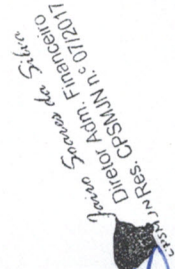 Jairo Soares da Silva
Diretor Adm. Financeiro
Res. CPSMJN n.º 07/2017
CPSMJN